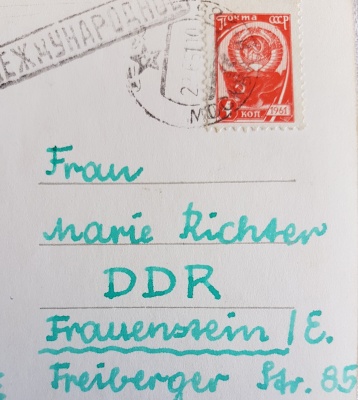 МЕЖДУНАРОДНОЕ
ПОЧТА СССР
4 КОП. 1961
Frau
Marie Richter
DDR
Frauenstein /E.
Freiberger Str. 85